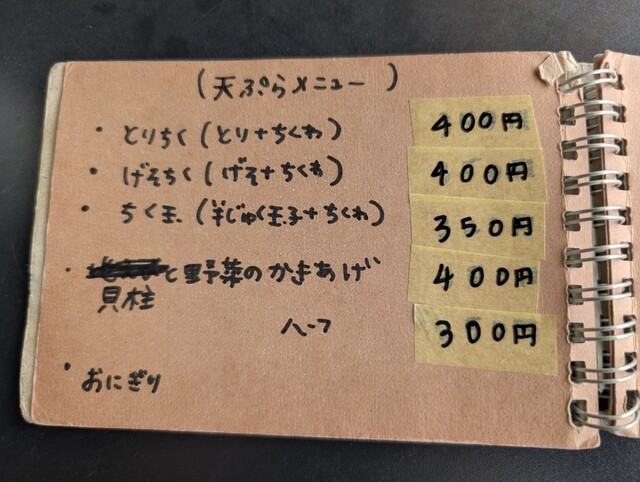 (天ぷらメニュー)
・とりちく(とり+ちくわ) 400円
・げそちく(げそ+ちくわ) 400円
・ちく玉(半じゅく玉子+ちくわ) 350円
・貝柱と野菜のかきあげ 400円
ハーフ 300円
・おにぎり